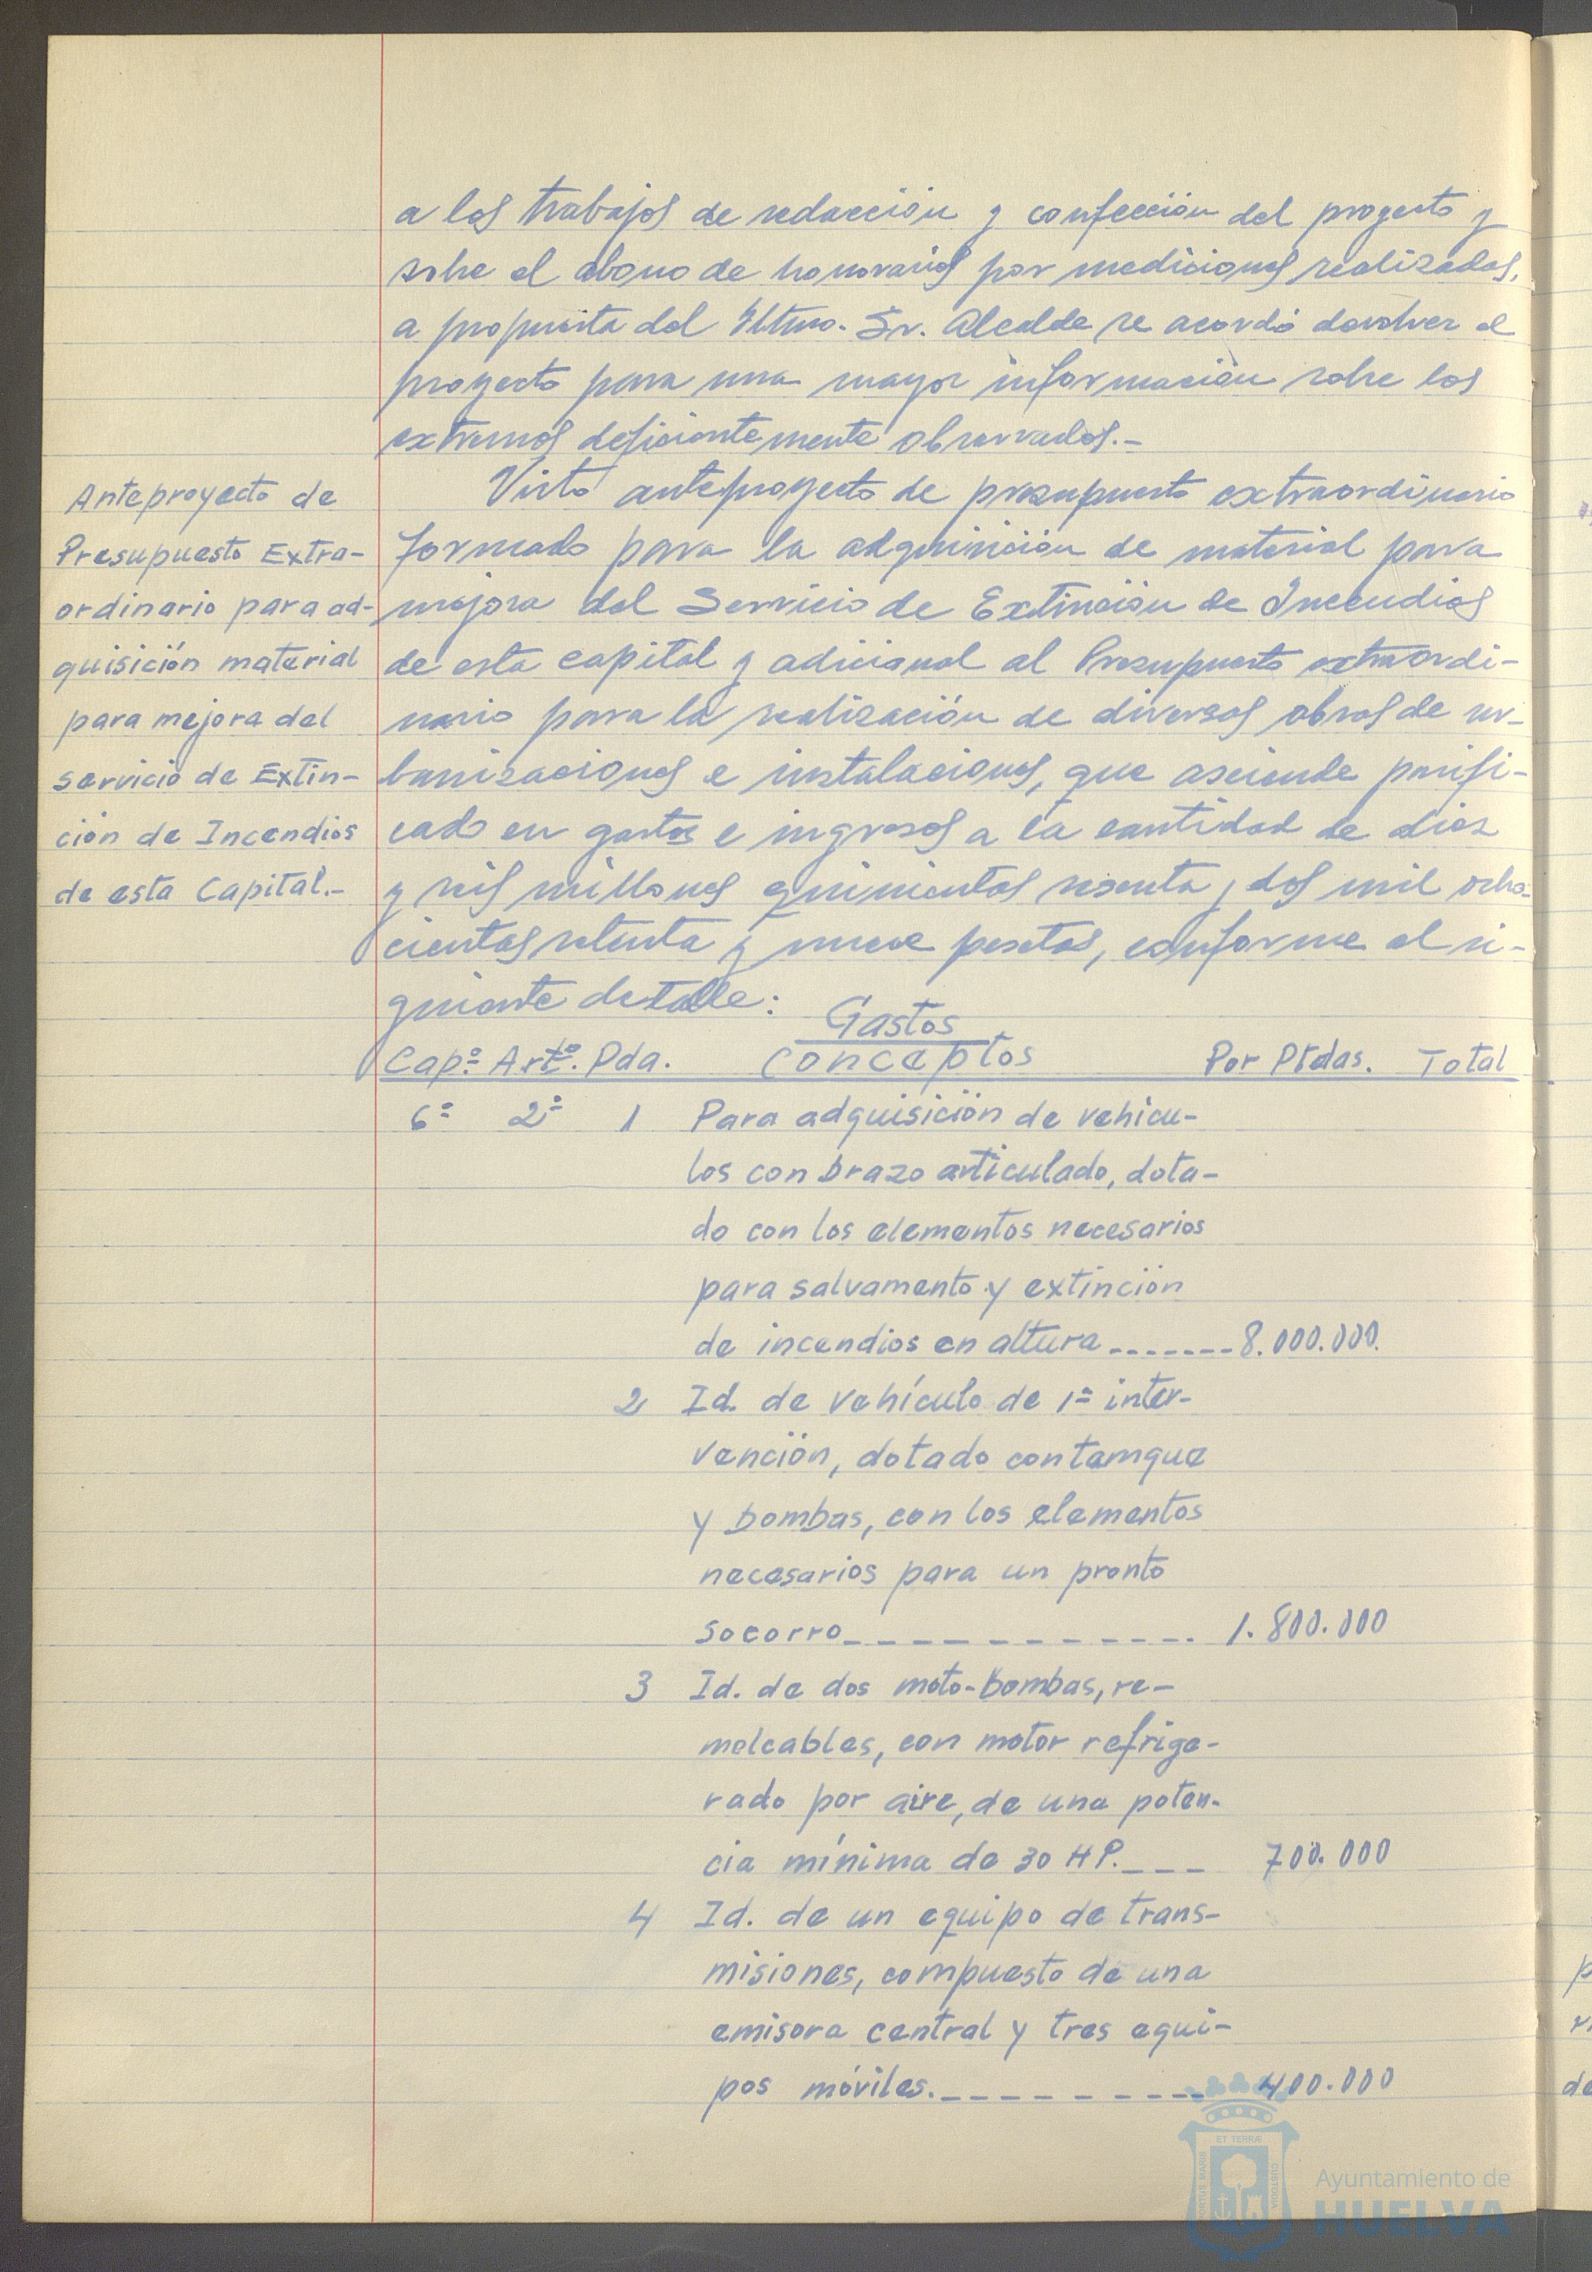 a los trabajos de redacción y confección del proyecto y
sobre el abono de honorarios por mediciones realizadas,
a propuesta del Iltmo. Sr. Alcalde se acordó devolver el
proyecto para una mayor información sobre los
extremos deficientemente observados.-
Anteproyecto de
Presupuesto Extra-
ordinario para ad-
quisición material
para mejora del
servicio de Extin-
ción de Incendios
de esta Capital.-
Visto anteproyecto de presupuesto extraordinario
formado para la adquisición de material para
mejora del Servicio de Extinción de Incendios
de esta capital y adicional al Presupuesto extraordi-
nario para la realización de diversas obras de ur-
banizaciones e instalaciones, que asciende
cado en gastos e ingresos a la cantidad de diez
y seis millones quinientas sesenta y dos mil ocho-
cientas setenta y nueve pesetas, conforme al si-
guiente detalle:
Gastos
Cap.º Art.º Pda. Conceptos Por Ptdas. Total
6º 2º 1 Para adquisición de vehícu-
los con brazo articulado, dota-
do con los elementos necesarios
para salvamento y extinción
de incendios en altura ------- 8.000.000.
2 Id. de vehículo de 1ª inter-
vención, dotado con tamque
y bombas, con los elementos
necesarios para un pronto
socorro ------------ 1.800.000
3 Id. de dos moto-bombas, re-
molcables, con motor refrige-
rado por aire, de una poten-
cia mínima de 30 HP. --- 700.000
4 Id. de un equipo de trans-
misiones, compuesto de una
emisora central y tres equi-
pos móviles. ---------- 400.000
Ayuntamiento de
HUELVA